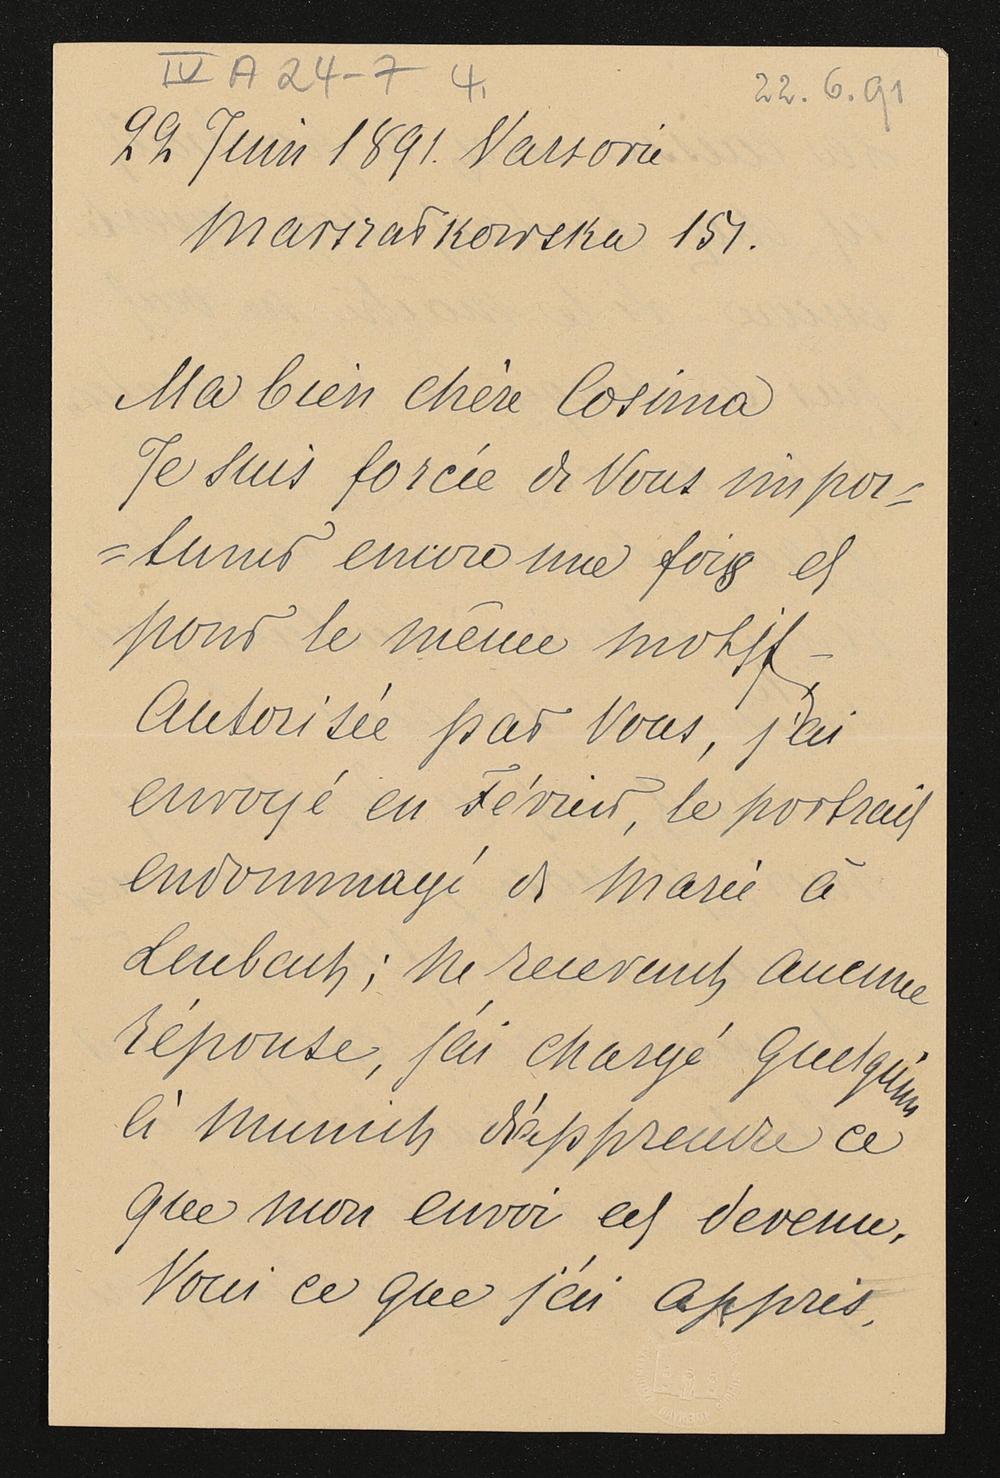 IV A 24-7 4.
22. 6. 91
22 Juin 1891. Varsovie
Marszałkowska 151.
Ma bien chère Cosima
Je suis forcée de Vous impor=
=tuner encore une fois et
pour le même motif –
Autorisée par Vous, j'ai
envoyé en Février, le portrait
endommagé de Marie à
Lenbach; Ne recevant aucune
réponse, j'ai chargé quelqu'un
à Munich d'apprendre ce
que mon envoi est devenu.
Voici ce que j'ai appris.